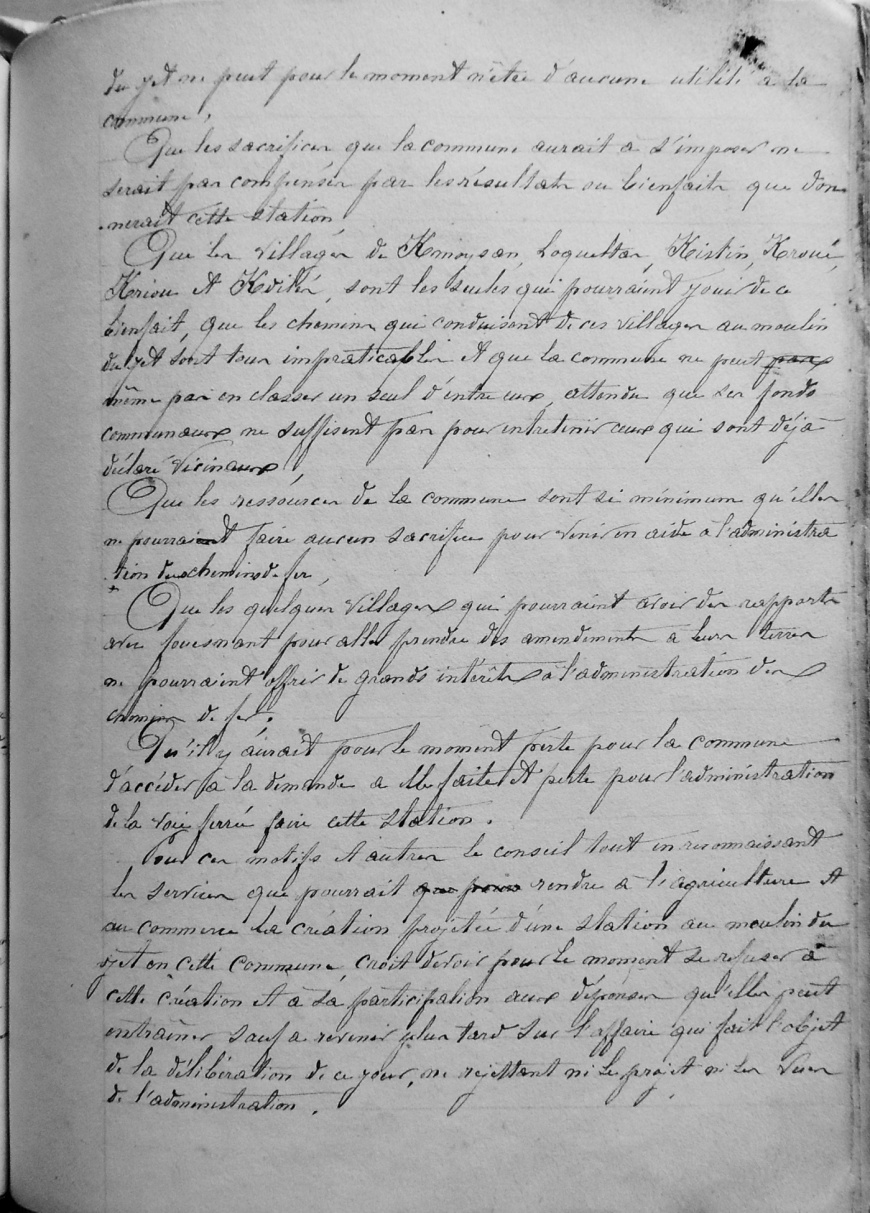 du jet ne peut pour le moment n'être d'aucune utilité à la
commune,
Que les sacrifices que la commune aurait à s'imposer ne
serait pas compensés par les résultats ou bienfaits que don
nerait cette station
Que les villages de Kmoysan, Loqueltas, Kistin, Kroué,
Kriou et Kdilés, sont les seules qui pourraient jouir de ce
bienfait, que les chemins qui conduisent de ces villages au moulin
du jet sont tous impraticables et que la commune ne peut pas
même pas en classer un seul d'entre eux, attendu que ses fonds
communaux ne suffisent pas pour entretenir ceux qui sont déjà
déclaré vicinaux,
Que les ressources de la commune sont si minimum qu'elles
ne pourraient faire aucun sacrifice pour venir en aide à l'administra
tion des chemins de fer,
Que les quelques villages qui pourraient avoir des rapports
avec fouesnant pour aller prendre des amendements à leurs terres
ne pourraient offrir de grands intérêts à l'administration des
chemins de fer.
Qu'il y aurait pour le moment perte pour la commune
d'accéder à la demande a elle faite et perte pour l'administration
de la voie ferrée faire cette station.
Pour ces motifs et autres le conseil tout en reconnaissant
les services que pourrait rendre à l'agriculture et
au commerce la création projetée d'une station au moulin du
jet en cette commune, croit devoir pour le moment se refuser à
cette création et à sa participation aux dépenses qu'elle peut
entraîner sauf a revenir plus tard sur l'affaire qui fait l'objet
de la délibération de ce jour, ne rejettant ni le projet ni les vues
de l'administration.